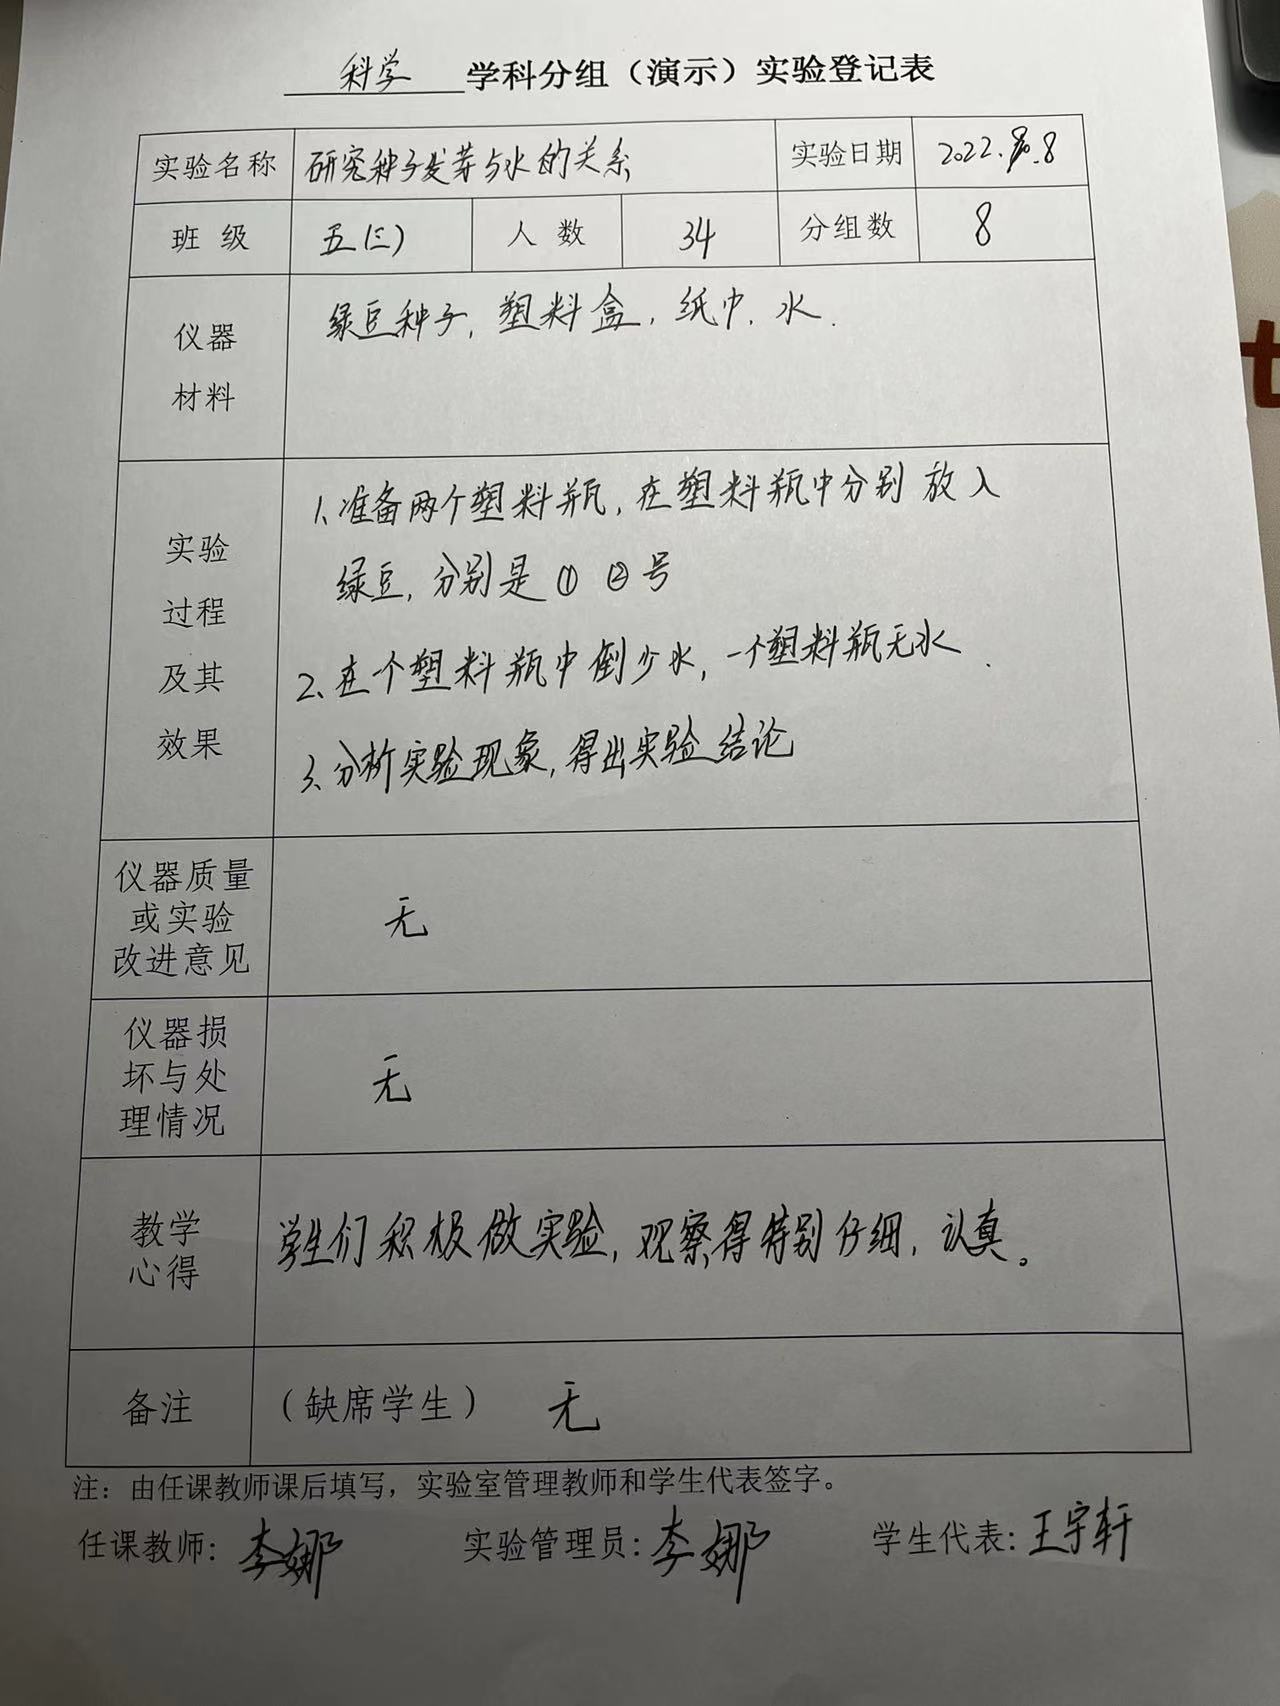 科学 学科分组（演示）实验登记表
实验名称 研究种子发芽与水的关系 实验日期 2022. .8
班 级 五(三) 人 数 34 分组数 8
仪器
材料
绿豆种子, 塑料盒, 纸巾, 水.
实验
过程
及其
效果
1、准备两个塑料瓶, 在塑料瓶中分别放入
绿豆, 分别是①②号
2、在个塑料瓶中倒少水, 一个塑料瓶无水.
3、分析实验现象, 得出实验结论
仪器质量
或实验
改进意见
无
仪器损
坏与处
理情况
无
教学
心得
学生们积极做实验, 观察得特别仔细, 认真。
备注 （缺席学生） 无
注：由任课教师课后填写，实验室管理教师和学生代表签字。
任课教师: 李娜 实验管理员: 李娜 学生代表: 王宇轩
t